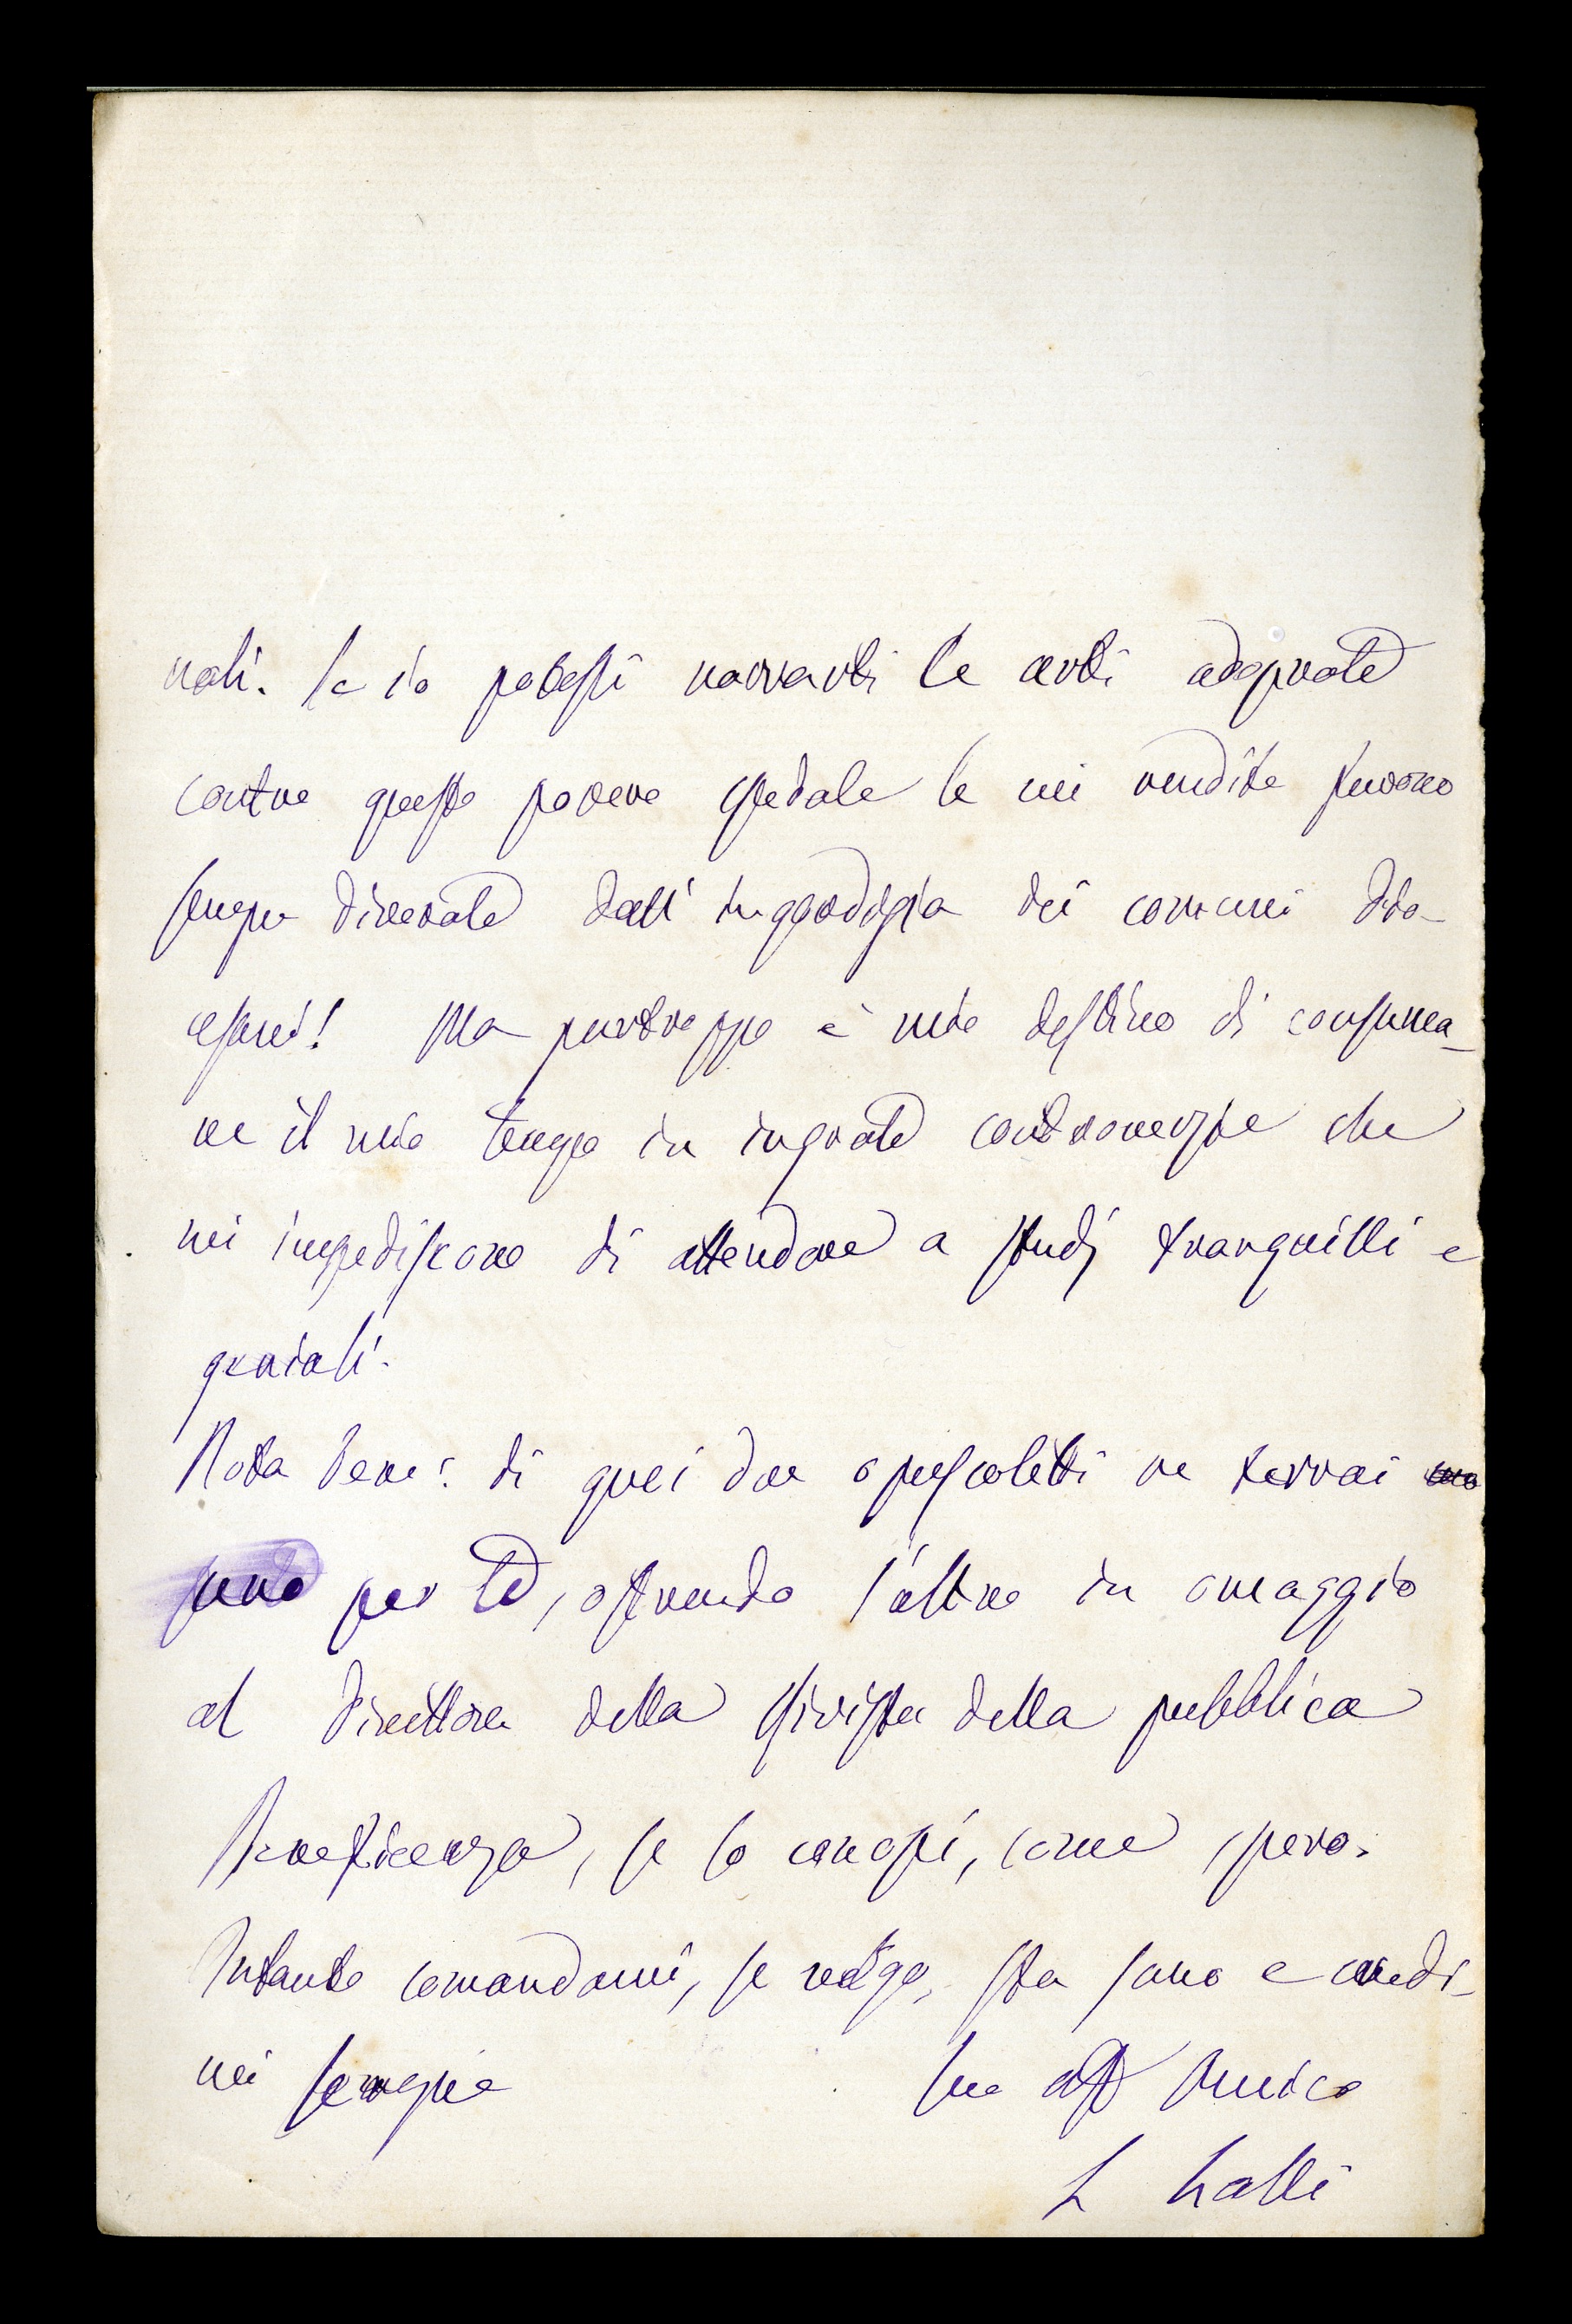 nali. Se io potessi narrarti le arti adoprate
contro questo povero spedale le cui rendite furono
sempre divorate dall' ingordigia dei comuni dio-
cesani! Ma purtroppo è mio destino di consuma-
re il mio tempo in ingrate controversie che
mi impediscono di attendere a studj tranquilli e
geniali.
Nota bene: di quei due opuscoletti ne terrai
uno per te, offrendo l'altro in omaggio
al Direttore della Rivista della pubblica
Beneficenza, se lo conosci, come spero.
Intanto comandami, se valgo, sta sano e credi-
mi sempre Tuo aff Amico
L